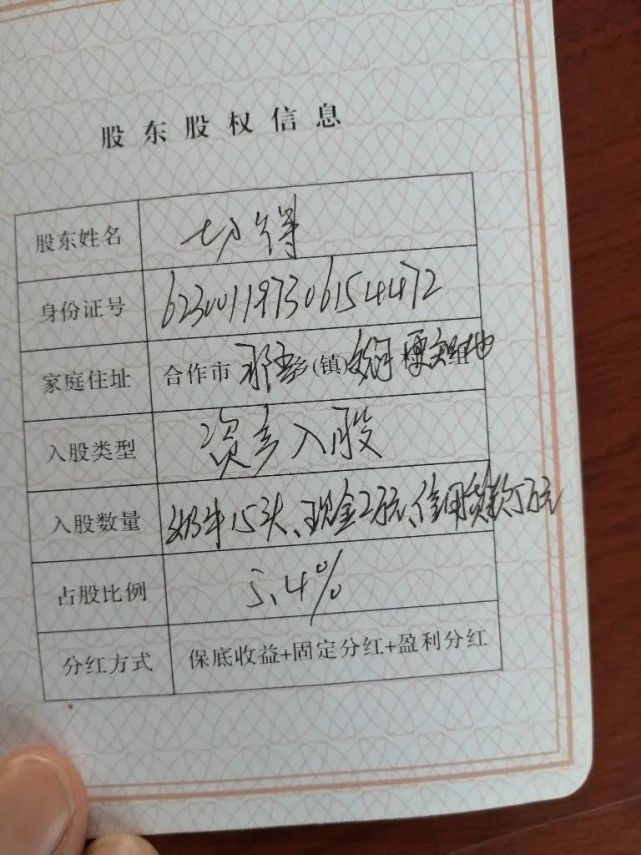 股东股权信息
股东姓名 切得
身份证号 623001197306154472
家庭住址 合作市 那吾乡(镇) 组
入股类型 资产入股
入股数量 奶牛15头、现金2万元、信用贷款5万元
占股比例 5.4%
分红方式 保底收益+固定分红+盈利分红